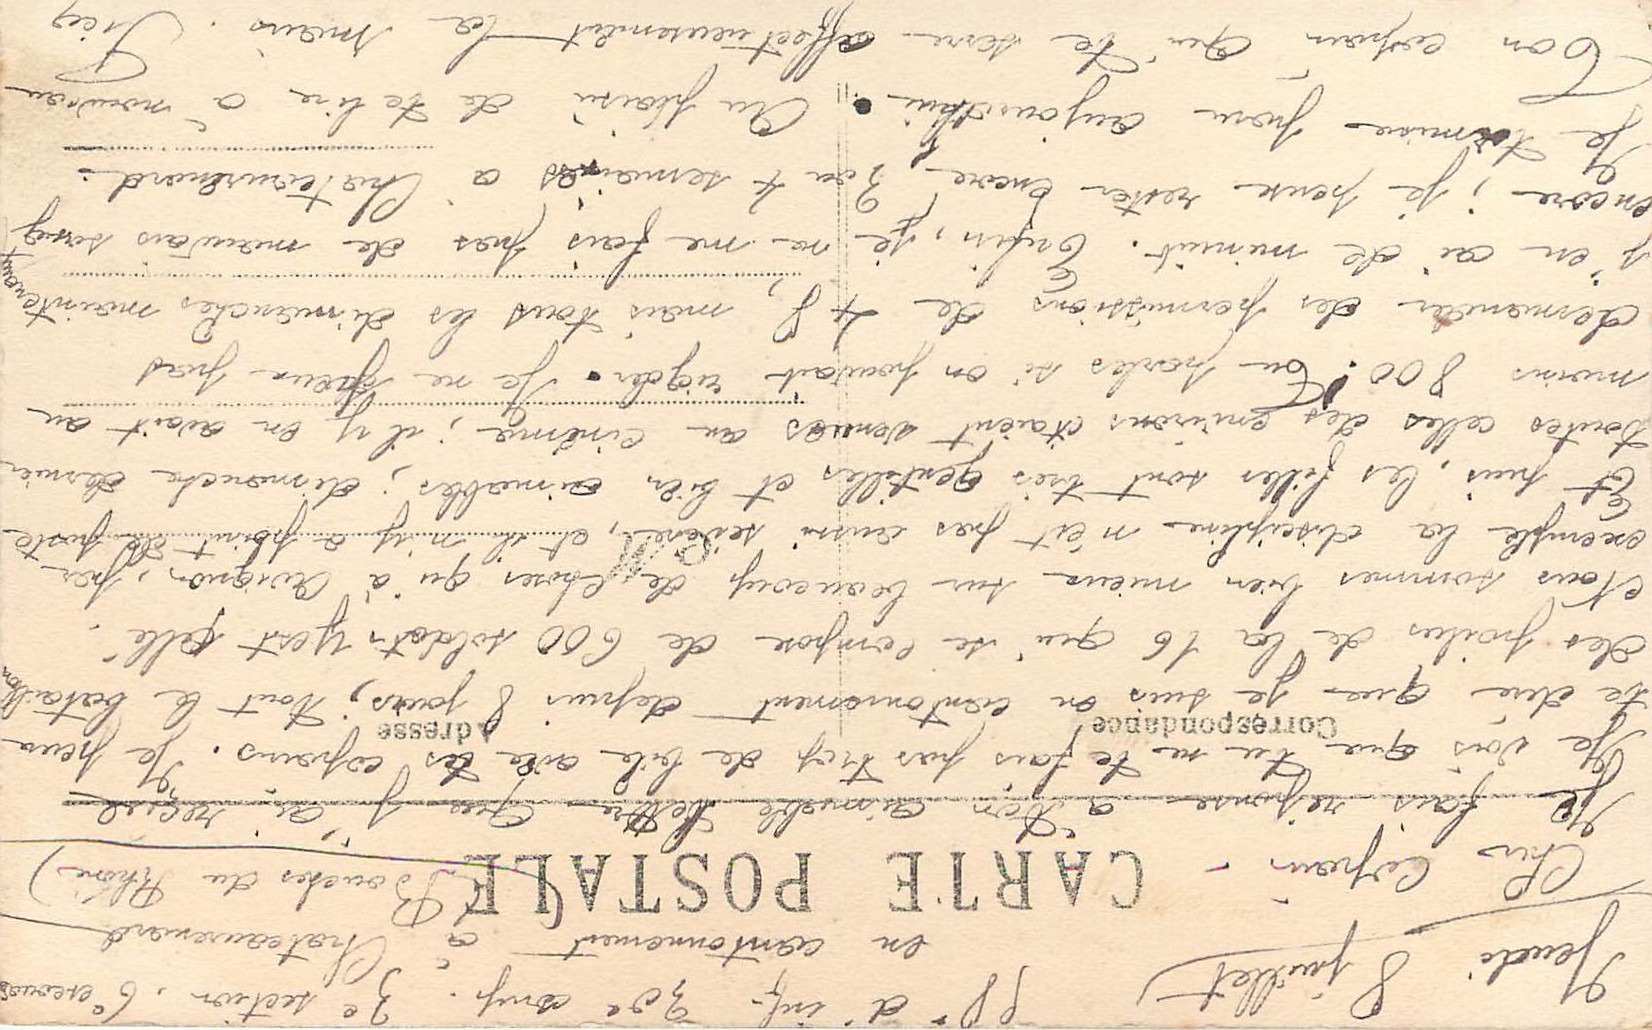 Jeudi 8 juillet
58e d'inf. 30e comp. 3e section. 6e escoua
en cantonnement à Chateaurenard
(Bouches du Rhône)
CARTE POSTALE
Cher Copain -
Je fais réponse à ton aimable lettre que j'ai reçue
Je vois que tu ne te fais pas trop de bile avec les copains. Je peux
Correspondance
Adresse
te dire que je suis en cantonnement depuis 8 jours, tout le bataillon
des poilus de la 16 qui se compose de 600 soldats y est allé.
Nous sommes bien mieux sur beaucoup de choses qu'à Avignon, par
exemple la discipline n'est pas aussi sévère, et il n'y a point de poste
Et puis, les filles sont très gentilles et bien aimables ; dimanche dernier
toutes celles des environs étaient venues au cinéma ; il y en avait au
moins 800. Tu parles si on pouvait rigoler. Je ne peux pas
demander des permissions de 48, mais tous les dimanches maintenant
j'en ai de minuit. Enfin, je ne me fais pas de mauvais sang
encore ; je pense rester encore 3 ou 4 semaines à Chateaurenard.
Je termine pour aujourd'hui. Au plaisir de te lire à nouveau
Ton copain qui te serre affectueusement la main.